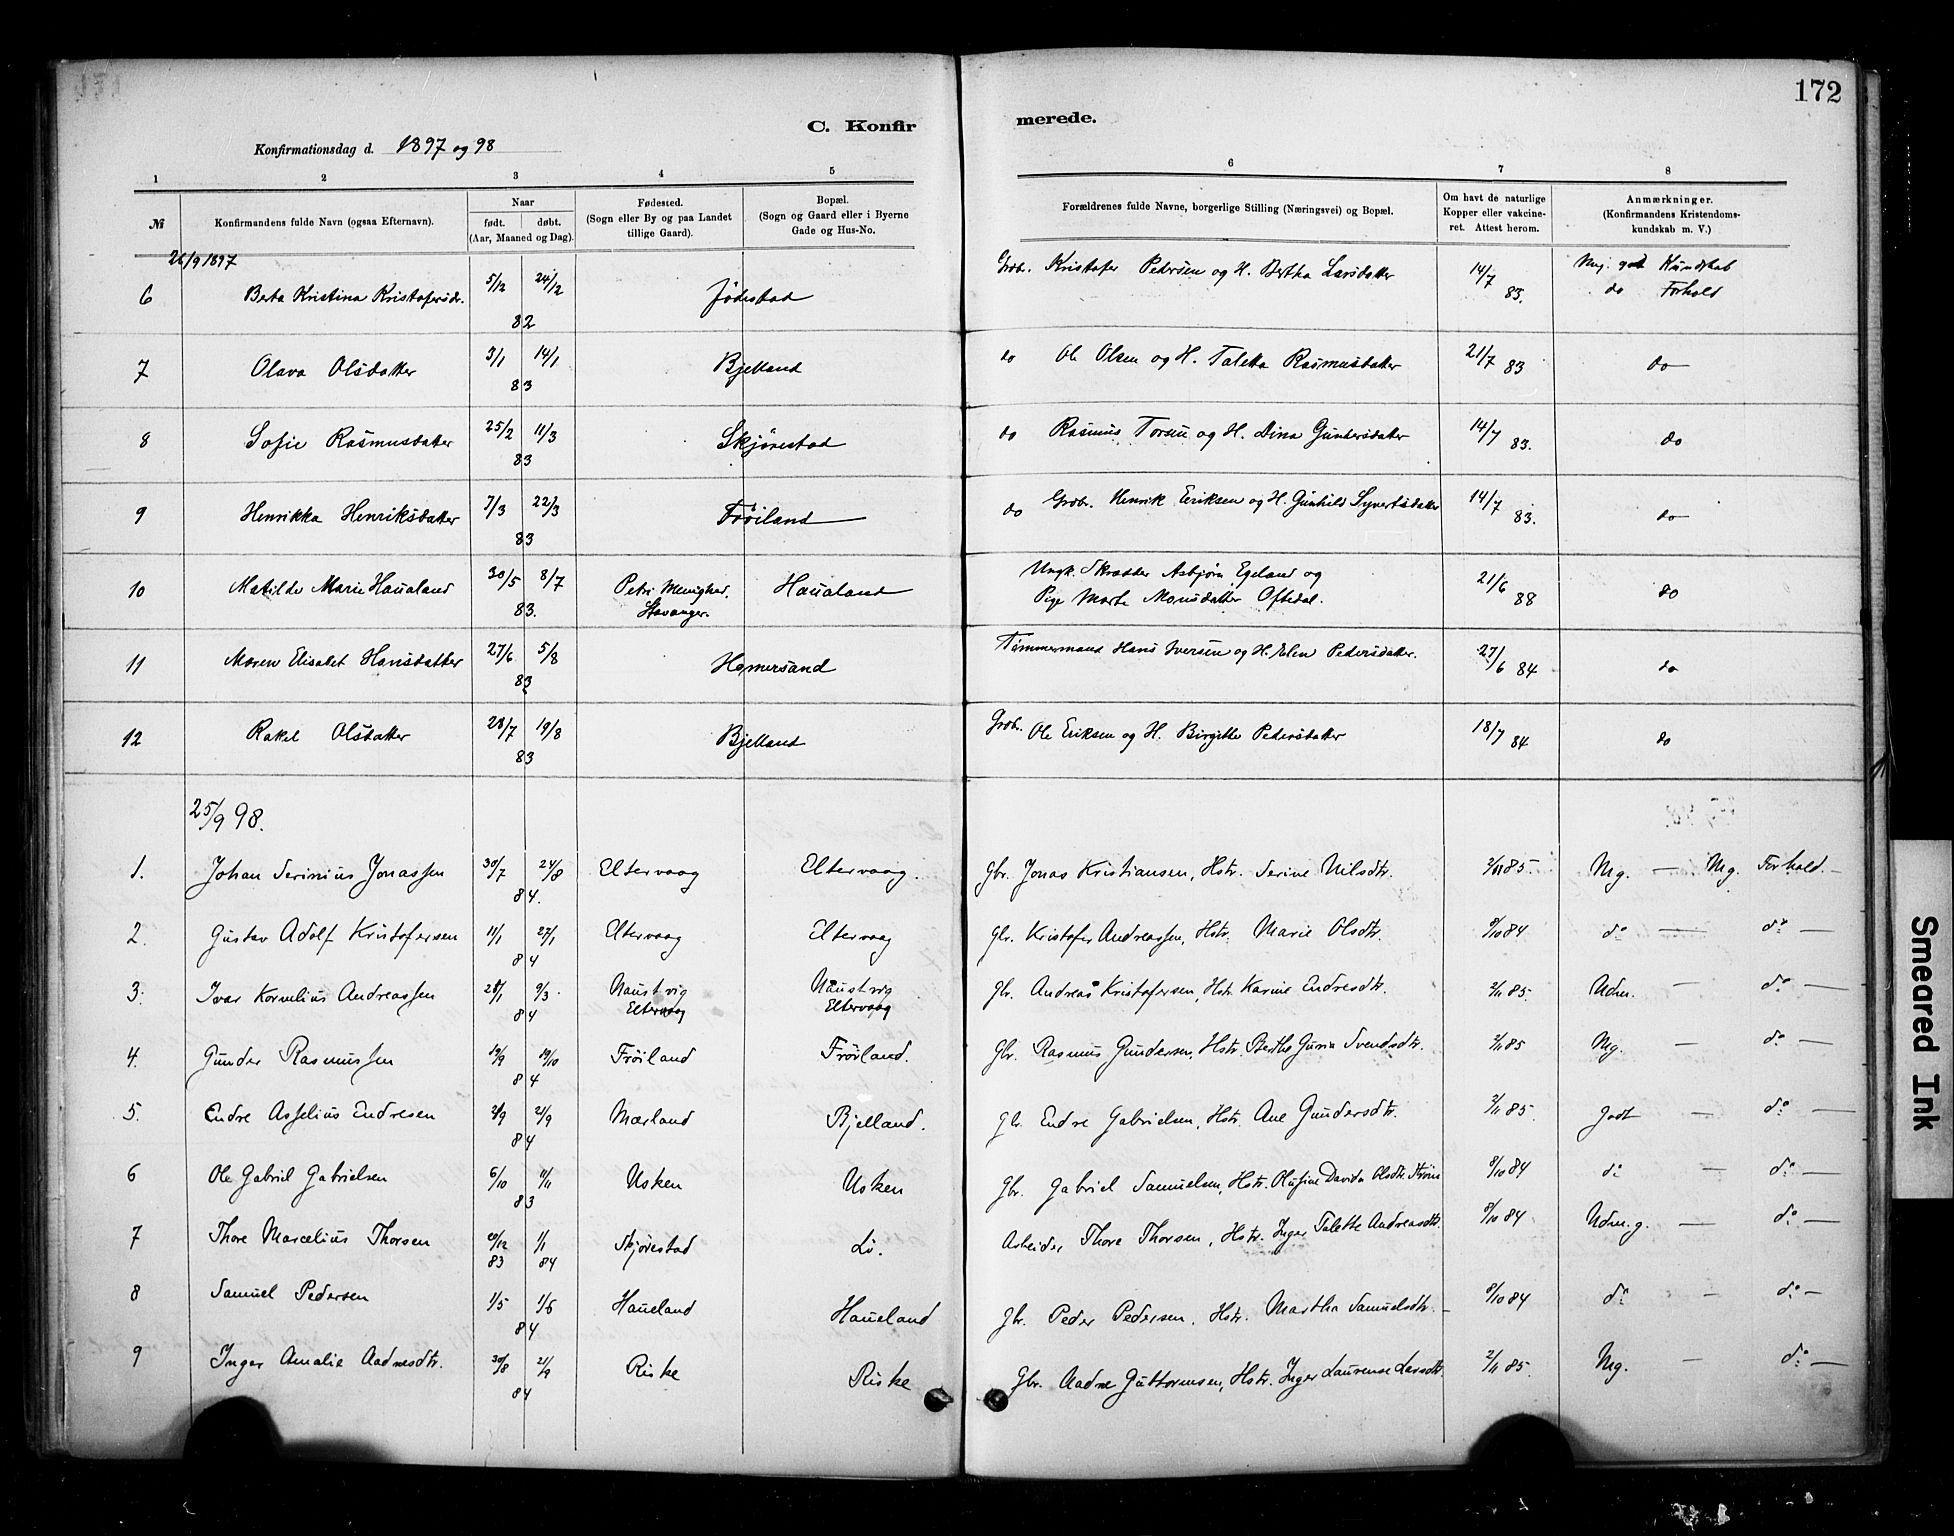 172
C. Konfir merede.
Konfirmationsdag d. 1897 og 98
1 2 3 4 5 6 7 8
№ Konfirmandens fulde Navn (ogsaa Efternavn). Naar født. døbt. (Aar, Maaned og Dag). Fødested. (Sogn eller By og paa Landet tillige Gaard). Bopæl. (Sogn og Gaard eller i Byerne Gade og Hus-No. Forældrenes fulde Navne, borgerlige Stilling (Næringsvei) og Bopæl. Om havt de naturlige Kopper eller vakcineret. Attest herom. Anmærkninger. (Konfirmandens Kristendomskundskab m. V.)
26/9 1897
6 Berta Kristina Kristofersdr. 5/12 24/12 82 Jødestad Grdbr. Kristofer Pedersen og H. Bertha Larsdatter 14/7 83. Mg. godt Kundskab do Forhold
7 Olava Olsdatter 3/1 14/1 83 Bjelland do Ole Olsen og H. Taletta Rasmusdatter 21/7 83 do
8 Sofie Rasmusdatter 25/2 11/3 83 Skjørestad do Rasmus Torsen og H. Dina Gundersdatter 14/7 83. do
9 Henrikka Henriksdatter 7/3 22/3 83 Frøiland do Grdbr. Henrik Eriksen og H. Gunhild Syvertsdatter 14/7 83. do
10 Matilde Marie Haualand 30/5 8/7 83. Petri Menighed. Stavanger. Haualand Ungk. Skrædder Asbjørn Egeland og Pige Marte Monsdatter Oftedal. 21/6 88 do
11 Maren Elisabet Hansdatter 27/6 5/8 83 Hamersand Tømmermand Hans Iversen og H. Elen Pedersdatter. 27/6 84 do
12 Rakel Olsdatter 28/7 19/8 83 Bjelland Grdbr. Ole Eriksen og H. Birgitte Pedersdatter 18/7 84 do
25/9 98.
1. Johan Serinius Jonassen 30/7 24/8 84. Eltervaag Eltervaag. Gbr. Jonas Kristiansen, Hstr. Serine Nilsdtr. 2/11 85. Mg. — Mg. Forhold. —
2. Gustav Adolf Kristofersen 11/1 27/1 84 Eltervaag Eltervaag Gbr. Kristofer Andreassen, Hstr. Marie Olsdtr. 8/10 84 do — do —
3. Ivar Kornelius Andreassen 28/1 9/3 84 Naustvig Eltervaag Naustvig Eltervaag Gbr. Andreas Kristofersen, Hstr. Karine Endresdtr. 2/11 85. Udm. — do —
4. Gunder Rasmussen 19/9 19/10 84 Frøiland Frøiland. Gbr. Rasmus Gundersen, Hstr. Berthe Guria Svendsdtr. 2/11 85 Mg. — do —
5. Endre Asselius Endresen 2/9 21/9 84 Mærland Bjelland. Gbr. Endre Gabrielsen, Hstr. Ane Gundersdtr. 2/11 85. Godt — do —
6 Ole Gabriel Gabrielsen 6/10 11/11 83 Usken Usken Gbr. Gabriel Samuelsen, Hstr. Olufine Davida Olsdtr. 8/10 84 do — do —
7 Thore Marcelius Thorsen 20/12 83 1/1 84 Skjørestad Li. Arbeider Thore Thorsen, Hstr. Inger Talette Andreasdtr. 8/10 84 Udm. g. — do —
8 Samuel Pedersen 1/5 1/6 84 Haueland Haueland Gbr. Peder Pedersen, Hstr. Martha Samuelsdtr. — 8/10 84 do — do —
9 Inger Amalie Aadnesdtr. 30/8 21/9 84 Riske Riske Gbr. Aadne Guttormsen, Hstr. Inger Laurense Larsdtr. 2/11 85. Mg. — do —
Smeared Ink